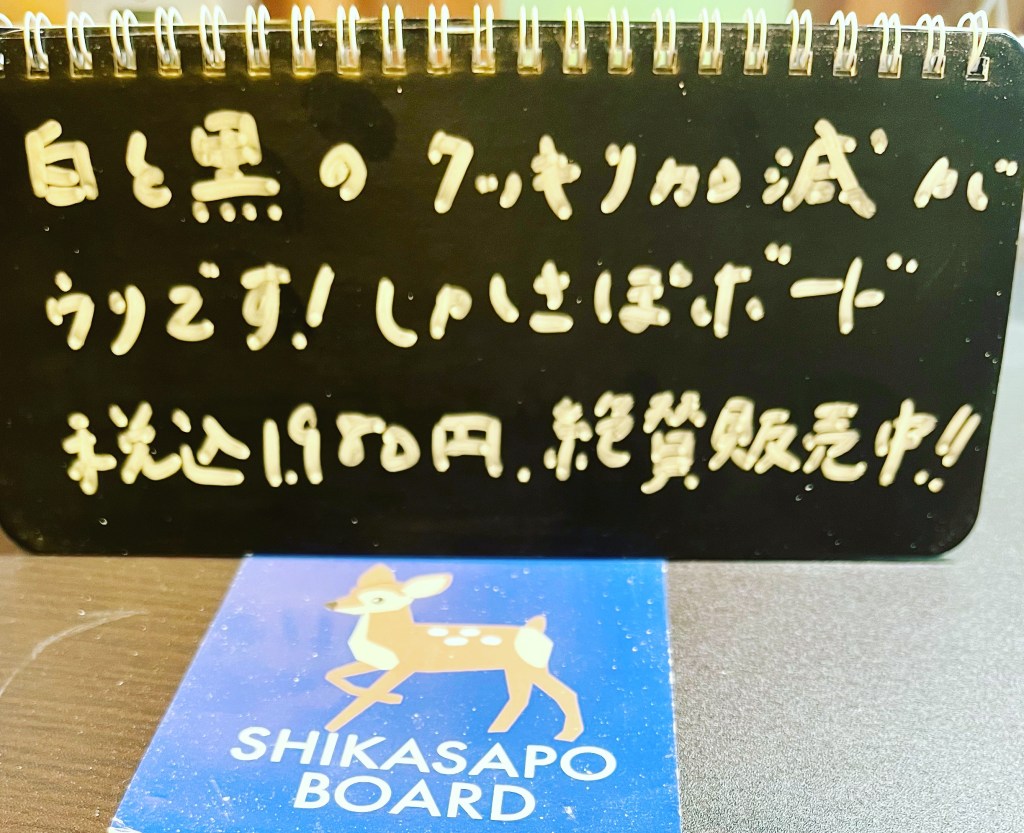 白と黒のクッキリ加減が
ウリです!しかさぽボード
税込1.980円.絶賛販売中!!
SHIKASAPO
BOARD